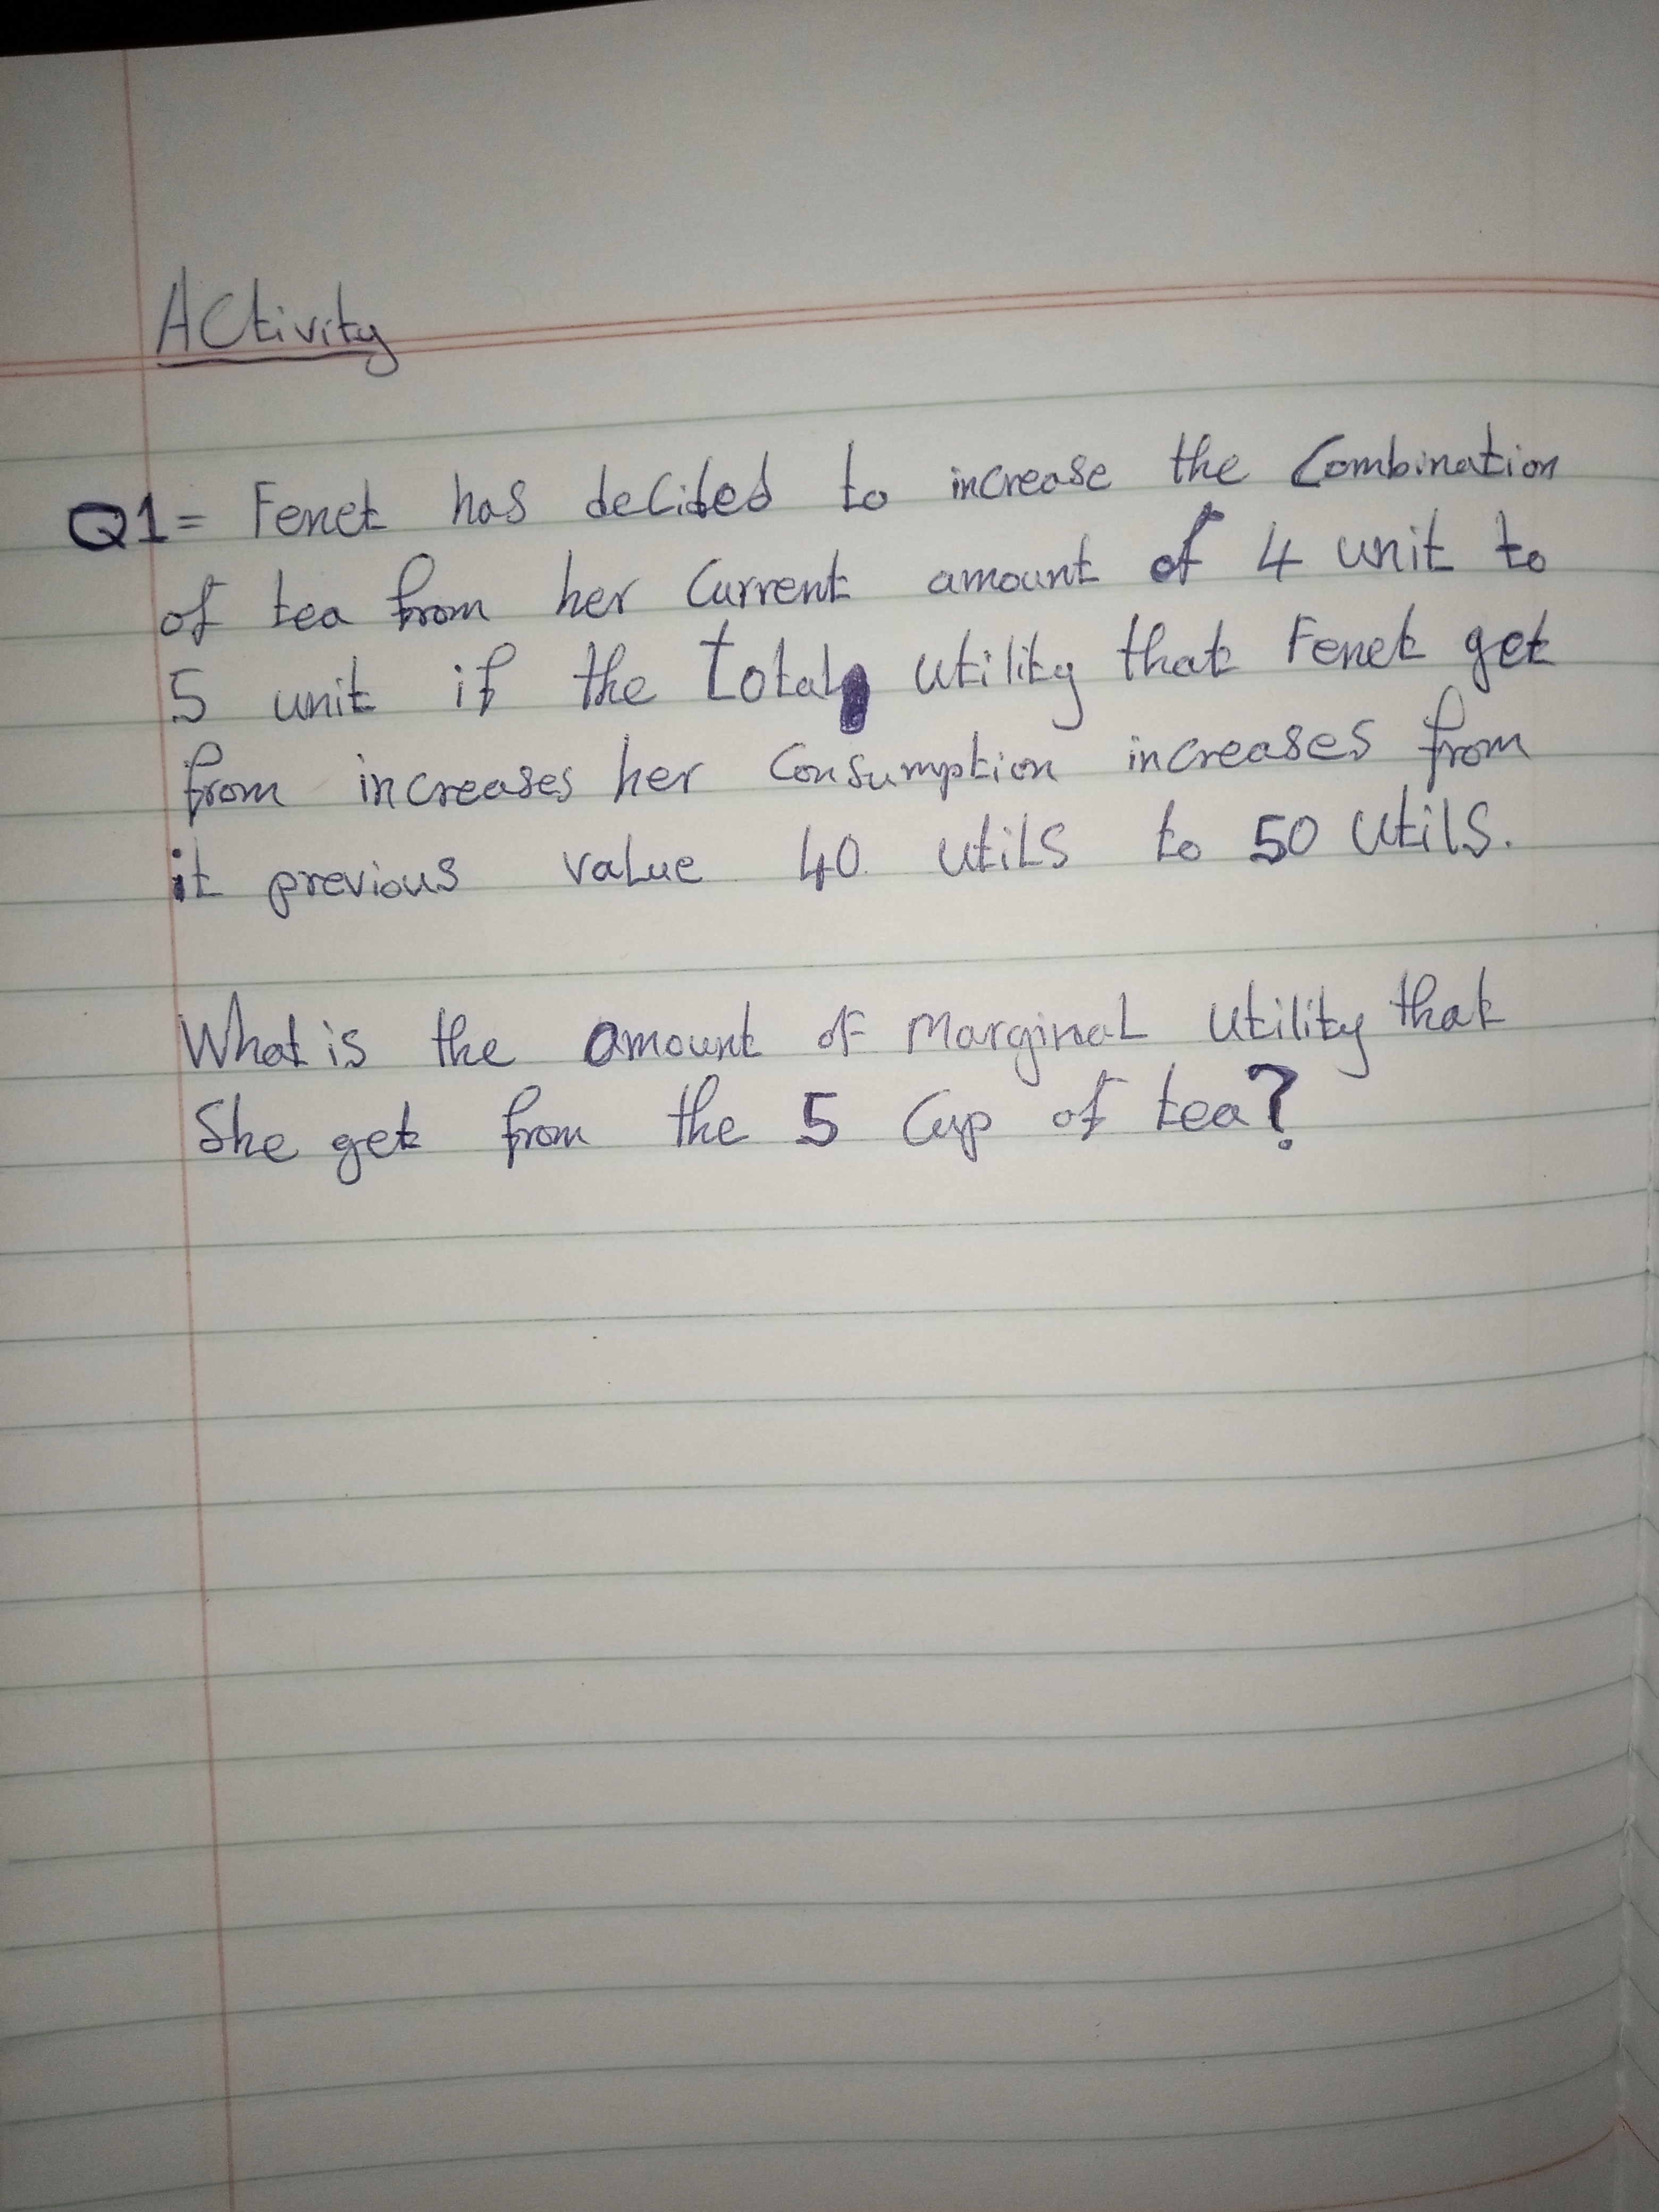 Activity
Q1= Fenet has decided to increase the Combination
of tea from her Current amount of 4 unit to
5 unit if the total utility that Fenet get
from increases her Consumption increases from
it previous value 40 utils to 50 utils.
What is the amount of Marginal utility that
She get from the 5 Cup of tea?